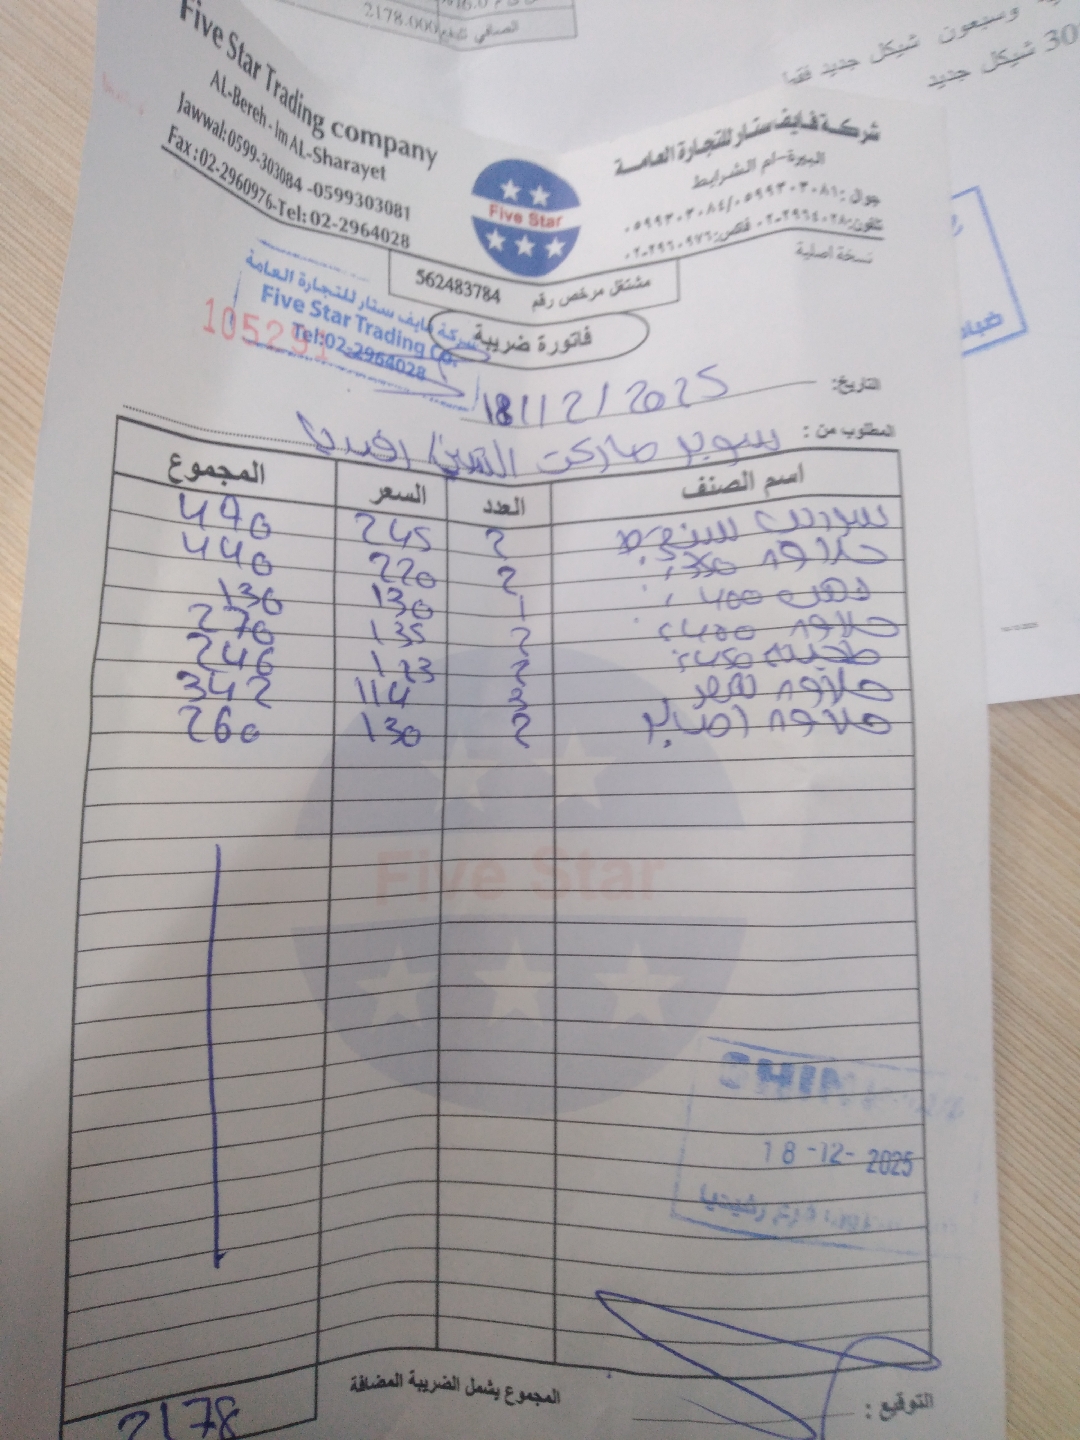 2178.000
الصافي للدفع
وسبعون شيكل جديد فقط
30 شيكل جديد
Five Star Trading company
AL-Bereh - Im AL-Sharayet
Jawwal: 0599-303084 -0599303081
Fax : 02-2960976-Tel: 02-2964028
شركة فايف ستار للتجارة العامة
البيرة-ام الشرايط
جوال : ٠٥٩٩٣٠٣٠٨٤/٠٥٩٩٣٠٣٠٨١
تلفون:٠٢-٢٩٦٤٠٢٨ فاكس:٠٢-٢٩٦٠٩٧٦
نسخة اصلية
Five Star
مشتغل مرخص رقم 562483784
فاتورة ضريبة
شركة فايف ستار للتجارة العامة
Five Star Trading Co.
Tel:02-2964028
105291
التاريخ: 18/12/2025
المطلوب من : سوبر ماركت
اسم الصنف العدد السعر المجموع
2 245 490
حلاوة 350 2 220 440
400 1 130 130
حلاوة 400 2 135 270
طحينة 450 2 123 246
حلاوة 3 114 342
حلاوة 2 130 260
Five Star
18 -12- 2025
المجموع يشمل الضريبة المضافة
2178
التوقيع :